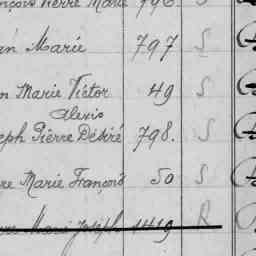 Pierre Marie 796.
Marie 797 S
Marie Victor 49 S
Alexis
Pierre Désiré 798. S
Marie François 50 S
Marie Joseph 1419 R